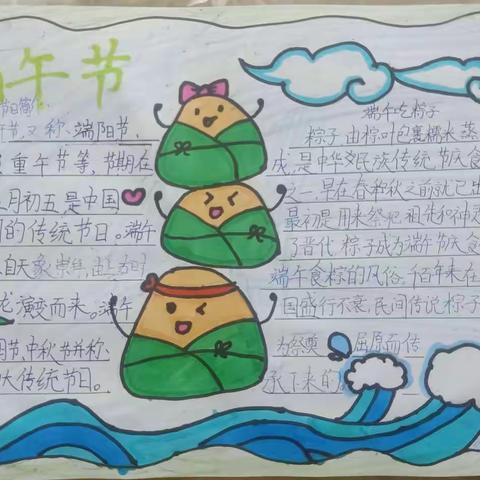 午节
节日简介
午节,又称、端阳节,
重午节等,节期在
月初五是中国
的传统节日。端午
自天象崇拜,由上古时
龙演变而来。端午
节,中秋节并称
大传统节日。
端午吃粽子
粽子由粽叶包裹糯米蒸
成,是中华民族传统节庆食
之一,早在春秋之前就已出
最初是用来祭祀祖先和神灵
了晋代,粽子成为端午节庆食
端午食粽的风俗,千百年来在
国盛行不衰,民间传说粽子
为祭奠 屈原而传
承下来的